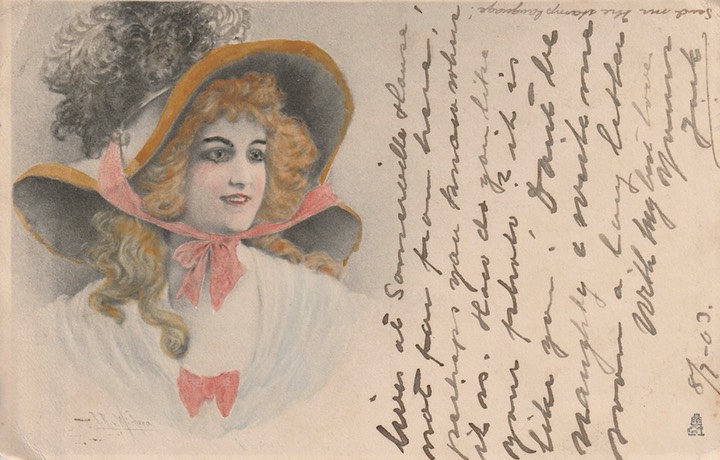 lives at Somerville House,
not far from here,
perhaps you know where
it is. How do you like
your photo? it is
like you. Don't be
naughty & write me
soon a long letter
With my best love
Yours
8/7-03.
Send me the stamp language!